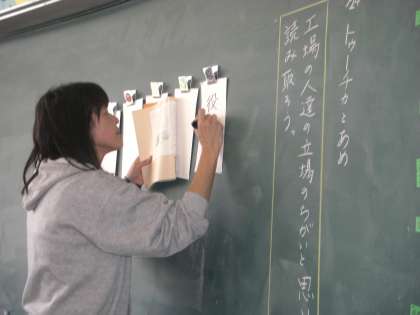 トゥーチカとあめ
工場の人達の立場のちがいと思い
読み取ろう。
役